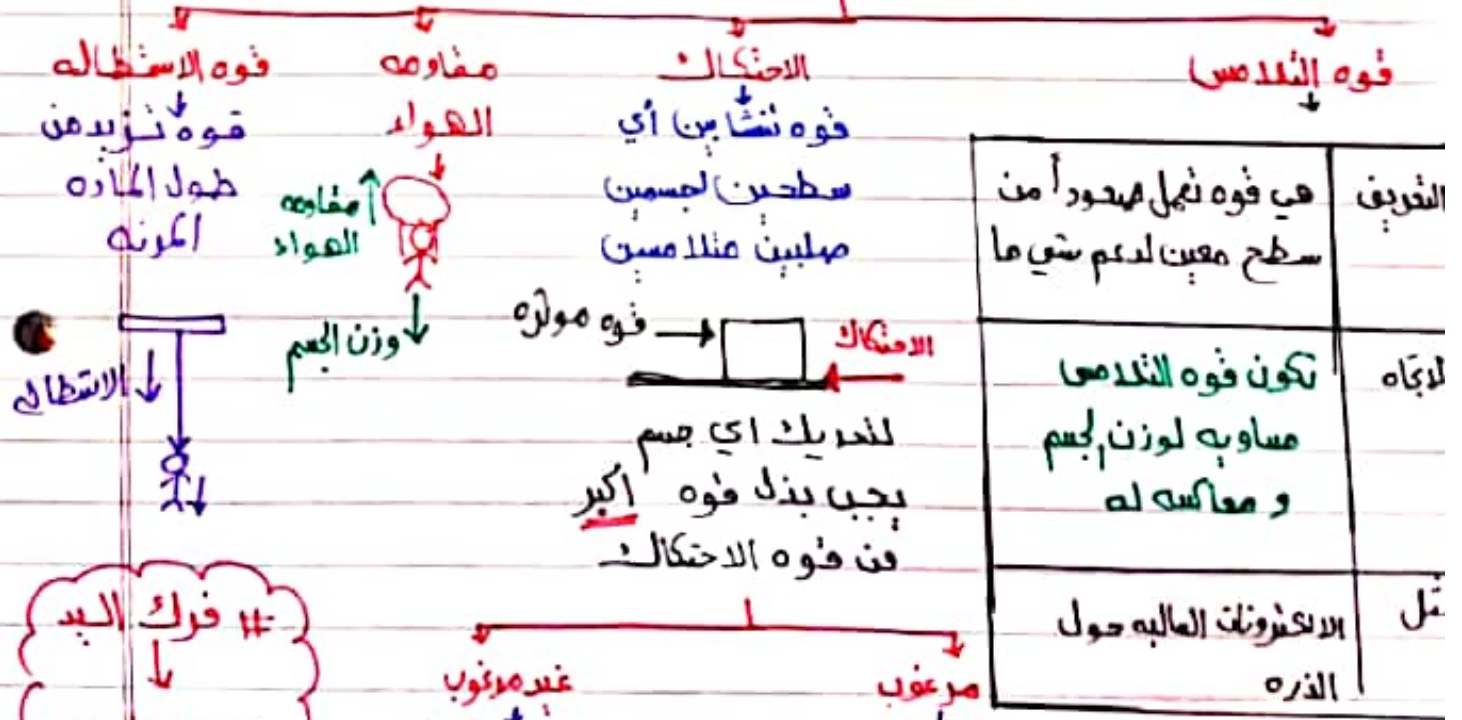 قوه التلامس
التعريف
هي قوه تعمل صعوداً من
سطح معين لدعم شي ما
لاتجاه
تكون قوه التلامس
مساويه لوزن الجسم
و معاكسه له
الالكترونات السالبه حول
الذره
الاحتكاك
قوه تنشا بين أي
سطحين لجسمين
صلبين متلامسين
قوه موثره
الاحتكاك
لتحريك اي جسم
يجب بذل قوه اكبر
من قوه الاحتكاك
مرغوب
غير مرغوب
مقاومه
الهواء
مقاومه
الهواء
وزن الجسم
قوه الاستطاله
قوه تزيد من
طول الماده
المرنه
# فرك اليد